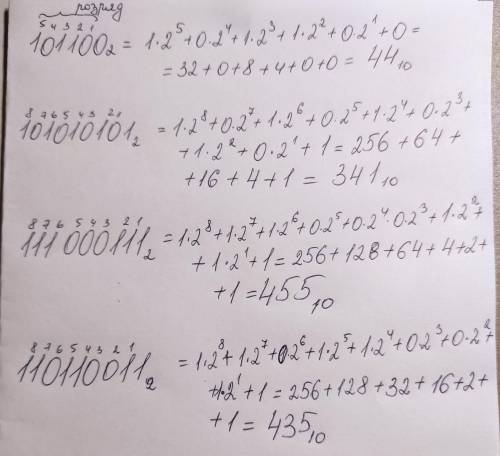 розряд
5 4 3 2 1
101100₂ = 1·2⁵+0·2⁴+1·2³+1·2²+0·2¹+0=
=32+0+8+4+0+0=44₁₀
8 7 6 5 4 3 2 1
101010101₂ =1·2⁸+0·2⁷+1·2⁶+0·2⁵+1·2⁴+0·2³+
+1·2²+0·2¹+1=256+64+
+16+4+1=341₁₀
8 7 6 5 4 3 2 1
111000111₂ =1·2⁸+1·2⁷+1·2⁶+0·2⁵+0·2⁴·0·2³+1·2²+
+1·2¹+1=256+128+64+4+2+
+1=455₁₀
8 7 6 5 4 3 2 1
110110011₂ =1·2⁸+1·2⁷+0·2⁶+1·2⁵+1·2⁴+0·2³+0·2²+
+1·2¹+1=256+128+32+16+2+
+1=435₁₀